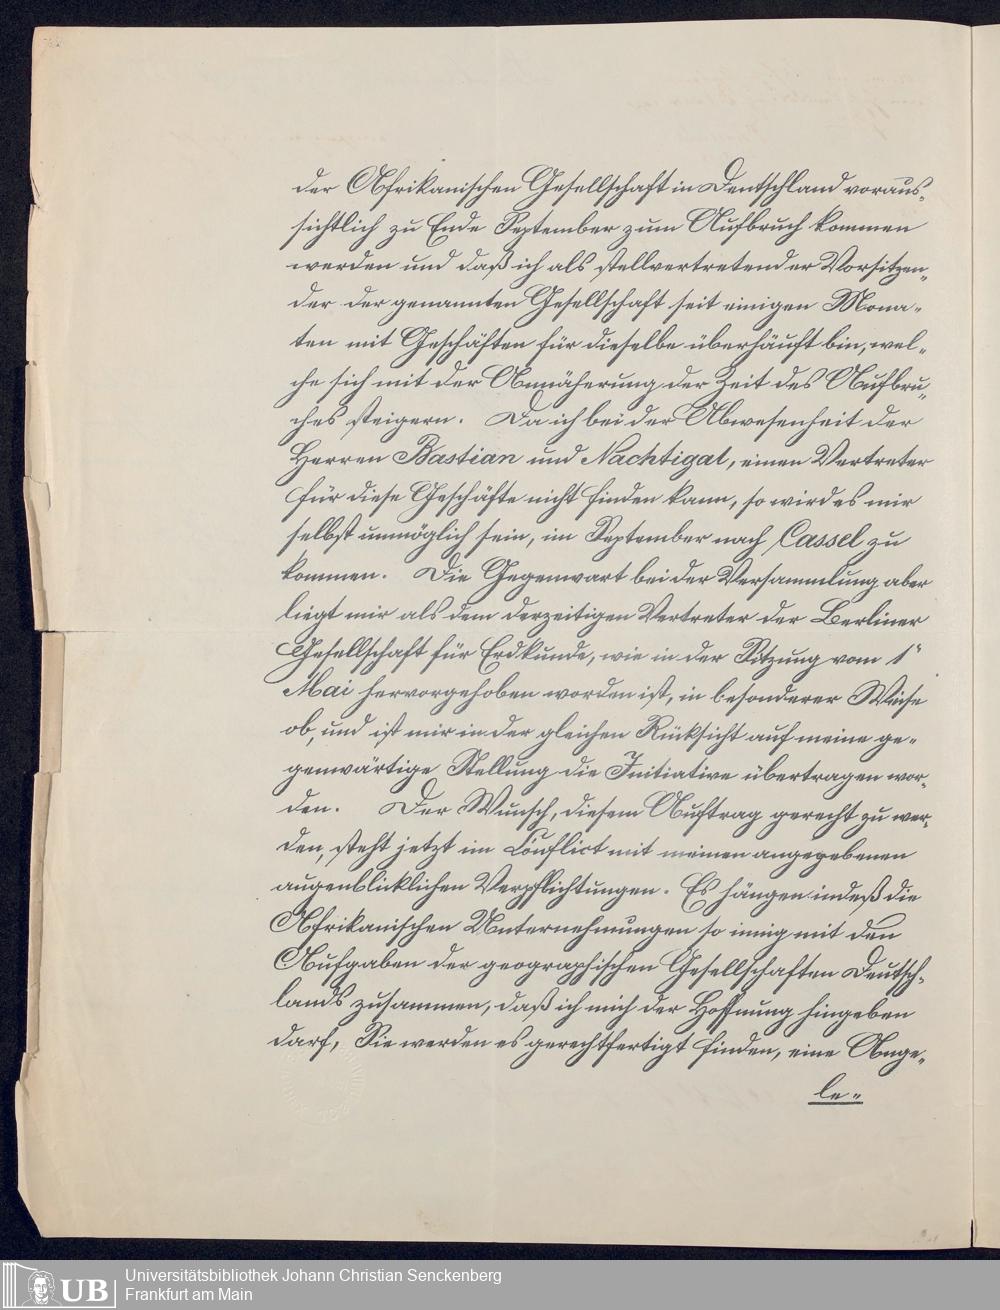 der Afrikanischen Gesellschaft in Deutschland voraus-
sichtlich zu Ende September zum Aufbruch kommen
werden und daß ich als stellvertretender Vorsitzen-
der der genannten Gesellschaft seit einigen Mona-
ten mit Geschäften für dieselbe überhäuft bin, wel-
che sich mit der Annäherung der Zeit des Aufbru-
ches steigern. Da ich bei der Abwesenheit der
Herren Bastian und Nachtigal, einen Vertreter
für diese Geschäfte nicht finden kann, so wird es mir
selbst unmöglich sein, im September nach Cassel zu
kommen. Die Gegenwart bei der Versammlung aber
liegt mir als dem derzeitigen Vertreter der Berliner
Gesellschaft für Erdkunde, wie in der Sitzung vom 1"
Mai hervorgehoben worden ist, in besonderer Weise
ob, und ist mir in der gleichen Rücksicht auf meine ge-
genwärtige Stellung die Initiative übertragen wor-
den. Der Wunsch, diesem Auftrag gerecht zu wer-
den, steht jetzt im Conflict mit meinen angegebenen
augenblicklichen Verpflichtungen. Es hängen indeß die
Afrikanischen Unternehmungen so innig mit den
Aufgaben der geographischen Gesellschaften Deutsch-
lands zusammen, daß ich mich der Hoffnung hingeben
darf, Sie werden es gerechtfertigt finden, eine Ange-
le-
UB
Universitätsbibliothek Johann Christian Senckenberg
Frankfurt am Main